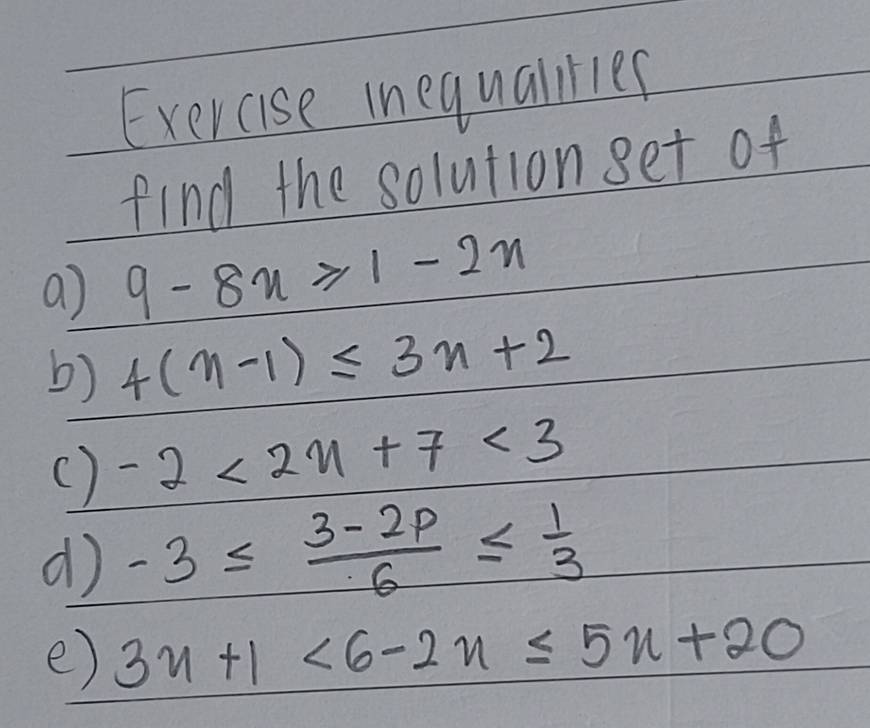 Exercise inequalities
find the solution set of
a) 9 - 8x ≥ 1 - 2x
b) 4(x-1) ≤ 3x + 2
c) -2 < 2x + 7 < 3
d) -3 ≤ \frac{3-2p}{6} ≤ \frac{1}{3}
e) 3x + 1 < 6 - 2x ≤ 5x + 20